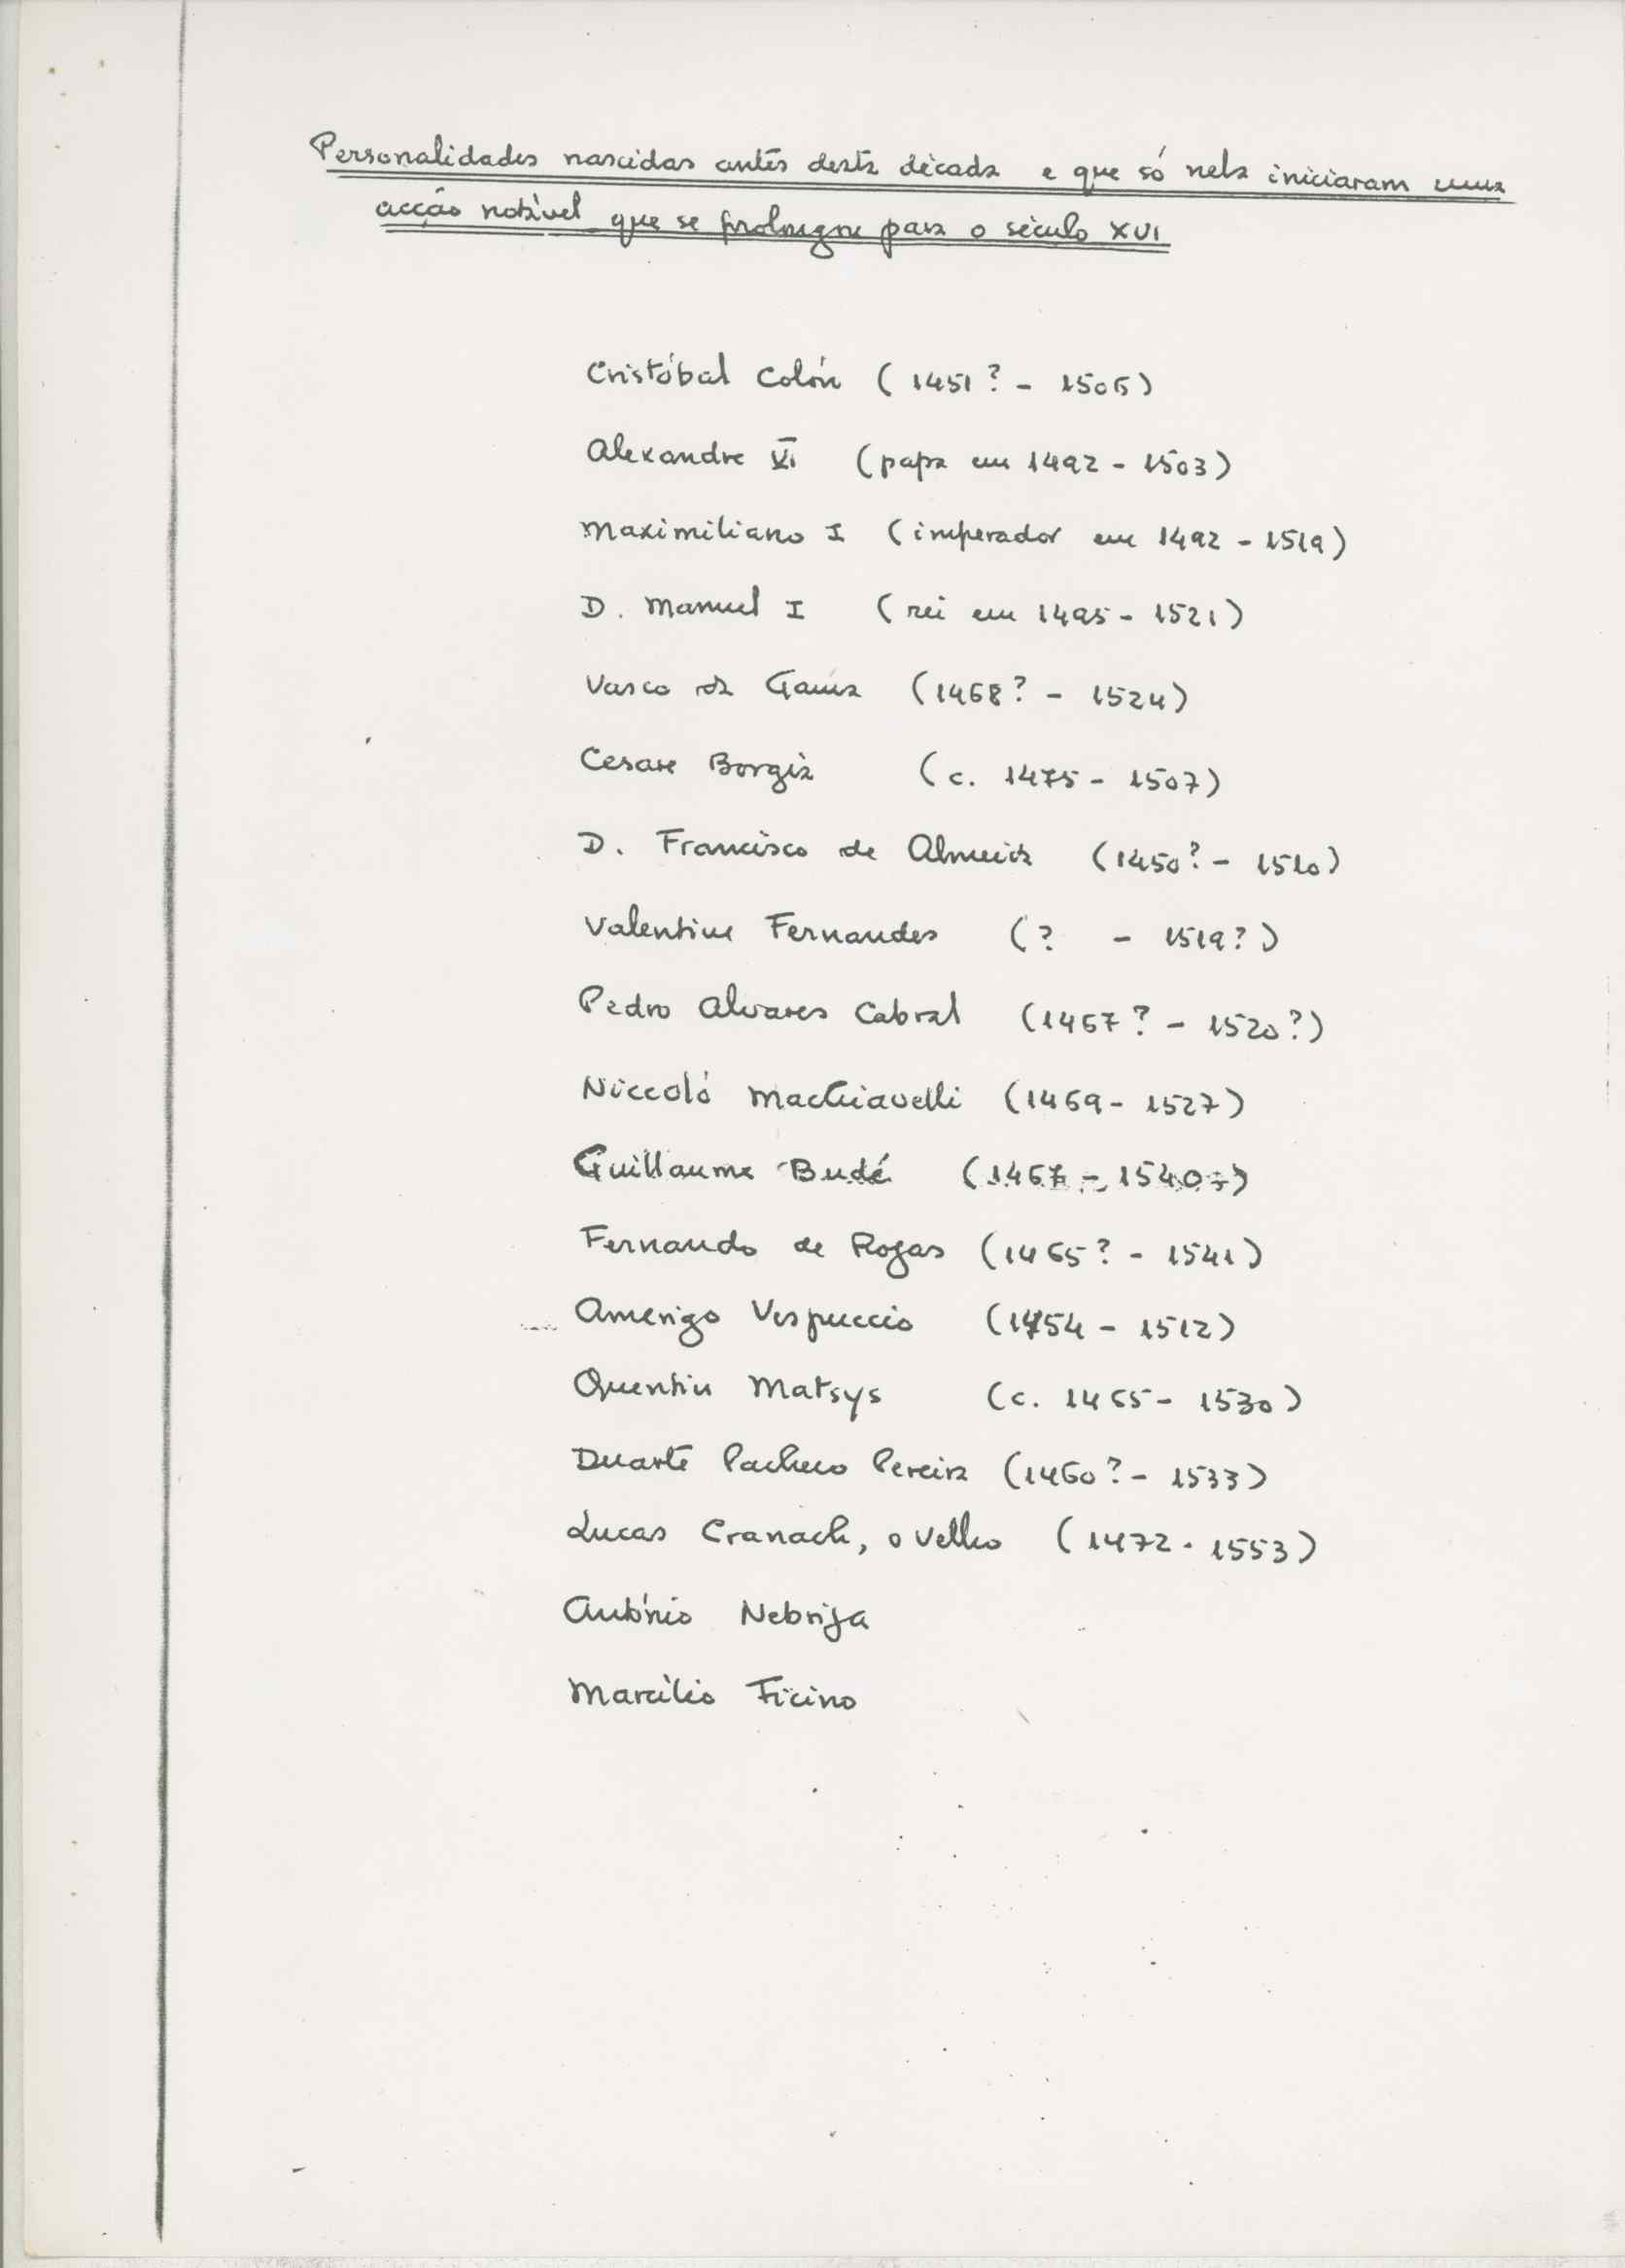 Personalidades nascidas antes desta década e que só nela iniciaram uma
acção notável que se prolongue para o século XVI
Cristóbal Colón (1451? - 1506)
Alexandre VI (papa em 1492 - 1503)
Maximiliano I (imperador em 1492 - 1519)
D. Manuel I (rei em 1495 - 1521)
Vasco da Gama (1468? - 1524)
Cesare Borgia (c. 1475 - 1507)
D. Francisco de Almeida (1450? - 1510)
Valentim Fernandes (? - 1519?)
Pedro Alvares Cabral (1467? - 1520?)
Niccoló Machiavelli (1469 - 1527)
Guillaume Budé (1467 - 1540)
Fernando de Rojas (1465? - 1541)
Amerigo Vespuccio (1454 - 1512)
Quentin Matsys (c. 1465 - 1530)
Duarte Pacheco Pereira (1460? - 1533)
Lucas Cranach, o Velho (1472 - 1553)
António Nebrija
Marcílio Ficino